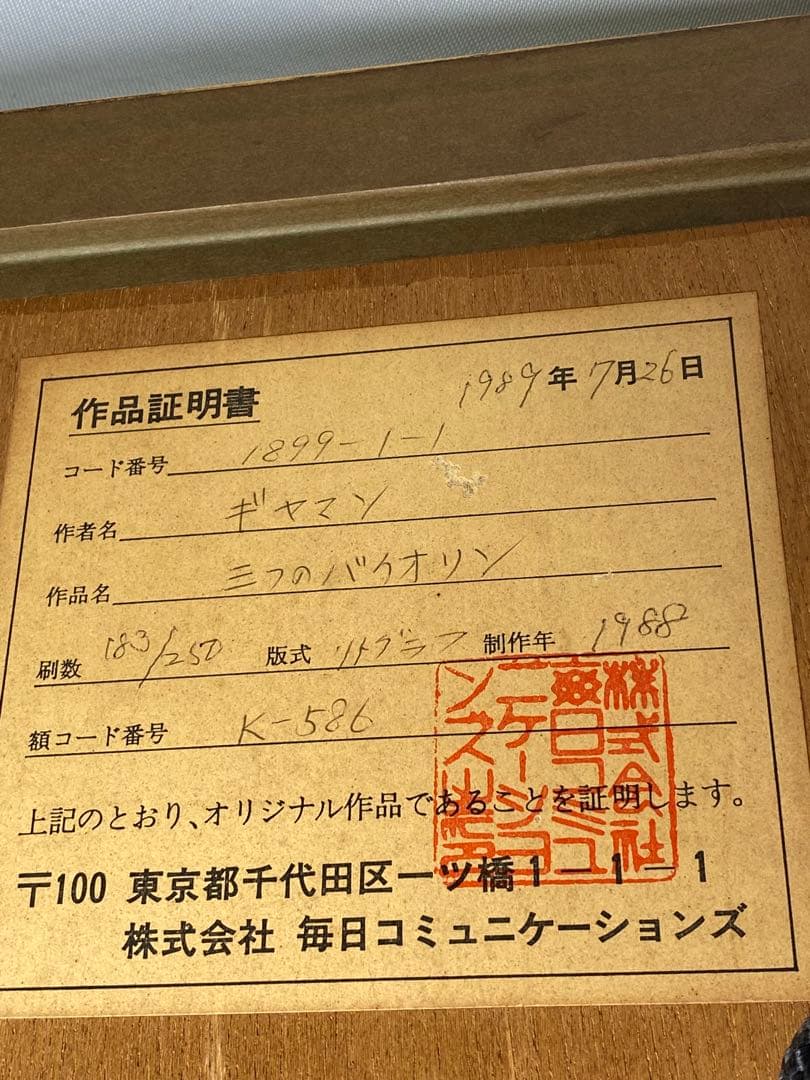 作品証明書
1989年7月26日
コード番号 1899-1-1
作者名 ギヤマン
作品名 三つのバイオリン
刷数 183/250 版式 リトグラフ 制作年 1988
額コード番号 K-586
上記のとおり、オリジナル作品であることを証明します。
〒100 東京都千代田区一ツ橋1-1-1
株式会社 毎日コミュニケーションズ
株式会社
毎日コミュ
ニケーショ